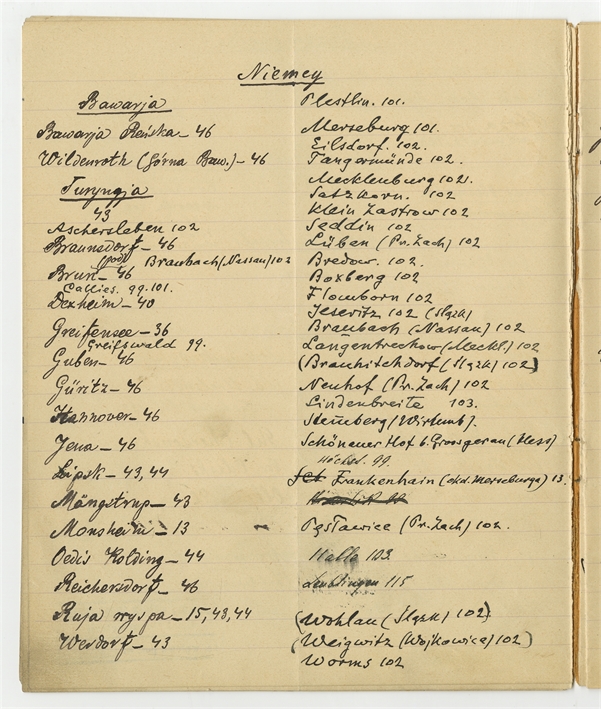 Niemcy
Bawarja
Bawarja Reńska - 46
Wildenroth (Górna Baw.) - 46
Turyngja
43
Aschersleben 102
Braunsdorf - 46
(pod) Braubach (Nassau) 102
Brun - 46
Callies. 99. 101.
Dexheim - 40
Greifensee - 36
Greifswald 99.
Guben - 46
Güritz - 46
Hannover - 46
Jena - 46
Lipsk - 43, 44
Mängstrup - 43
Monsheim - 13
Oedis Kolding - 44
Reichersdorf - 46
Ruja wyspa - 15, 43, 44
Wesdorf - 43
Plestlin. 101.
Merseburg 101.
Eilsdorf. 102.
Tangermünde 102.
Mecklenburg 102.
Satzkorn. 102
Klein Zastrow 102
Seddin 102
Lüben (Pr. Zach) 102
Bredow. 102
Boxberg 102
Flomborn 102
Jeseritz 102 (Śląsk)
Braubach (Nassau) 102
Langentrechow (Meckl.) 102
(Brauhitschdorf (Śląsk) 102)
Neuhof (Pr. Zach) 102
Lindenbreite 103.
Stemberg (Wirtemb).
Schönauer Hof b. Grossgerau (Hess)
Höchst. 99.
Frankenhain (okd. Merseburga) 13.
Pęsławice (Pr. Zach) 102.
Halle 103
Leublingen 115
(Wohlau (Śląsk) 102)
(Weigwitz (Wojkowice) 102)
Worms 102